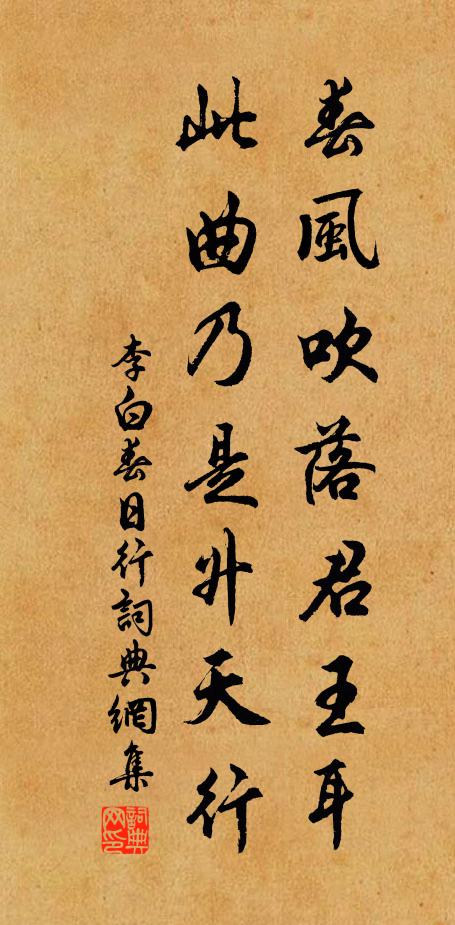 春風吹落君王耳
此曲乃是升天行
李白春日行詞典網集
詞典
网印